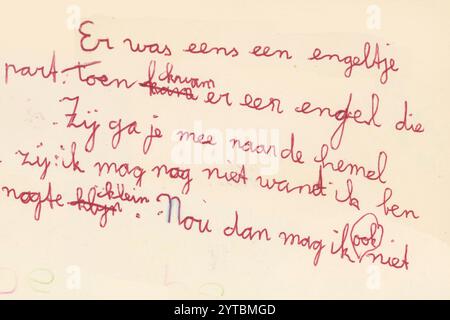 Er was eens een engeltje
part. Toen kwam er een engel die
Zij ga je mee naar de hemel
zij: ik mag nog niet want ik ben
nogte klein. Nou dan mag ik ook niet
alamy
Image ID: 2YTBMGD
www.alamy.com